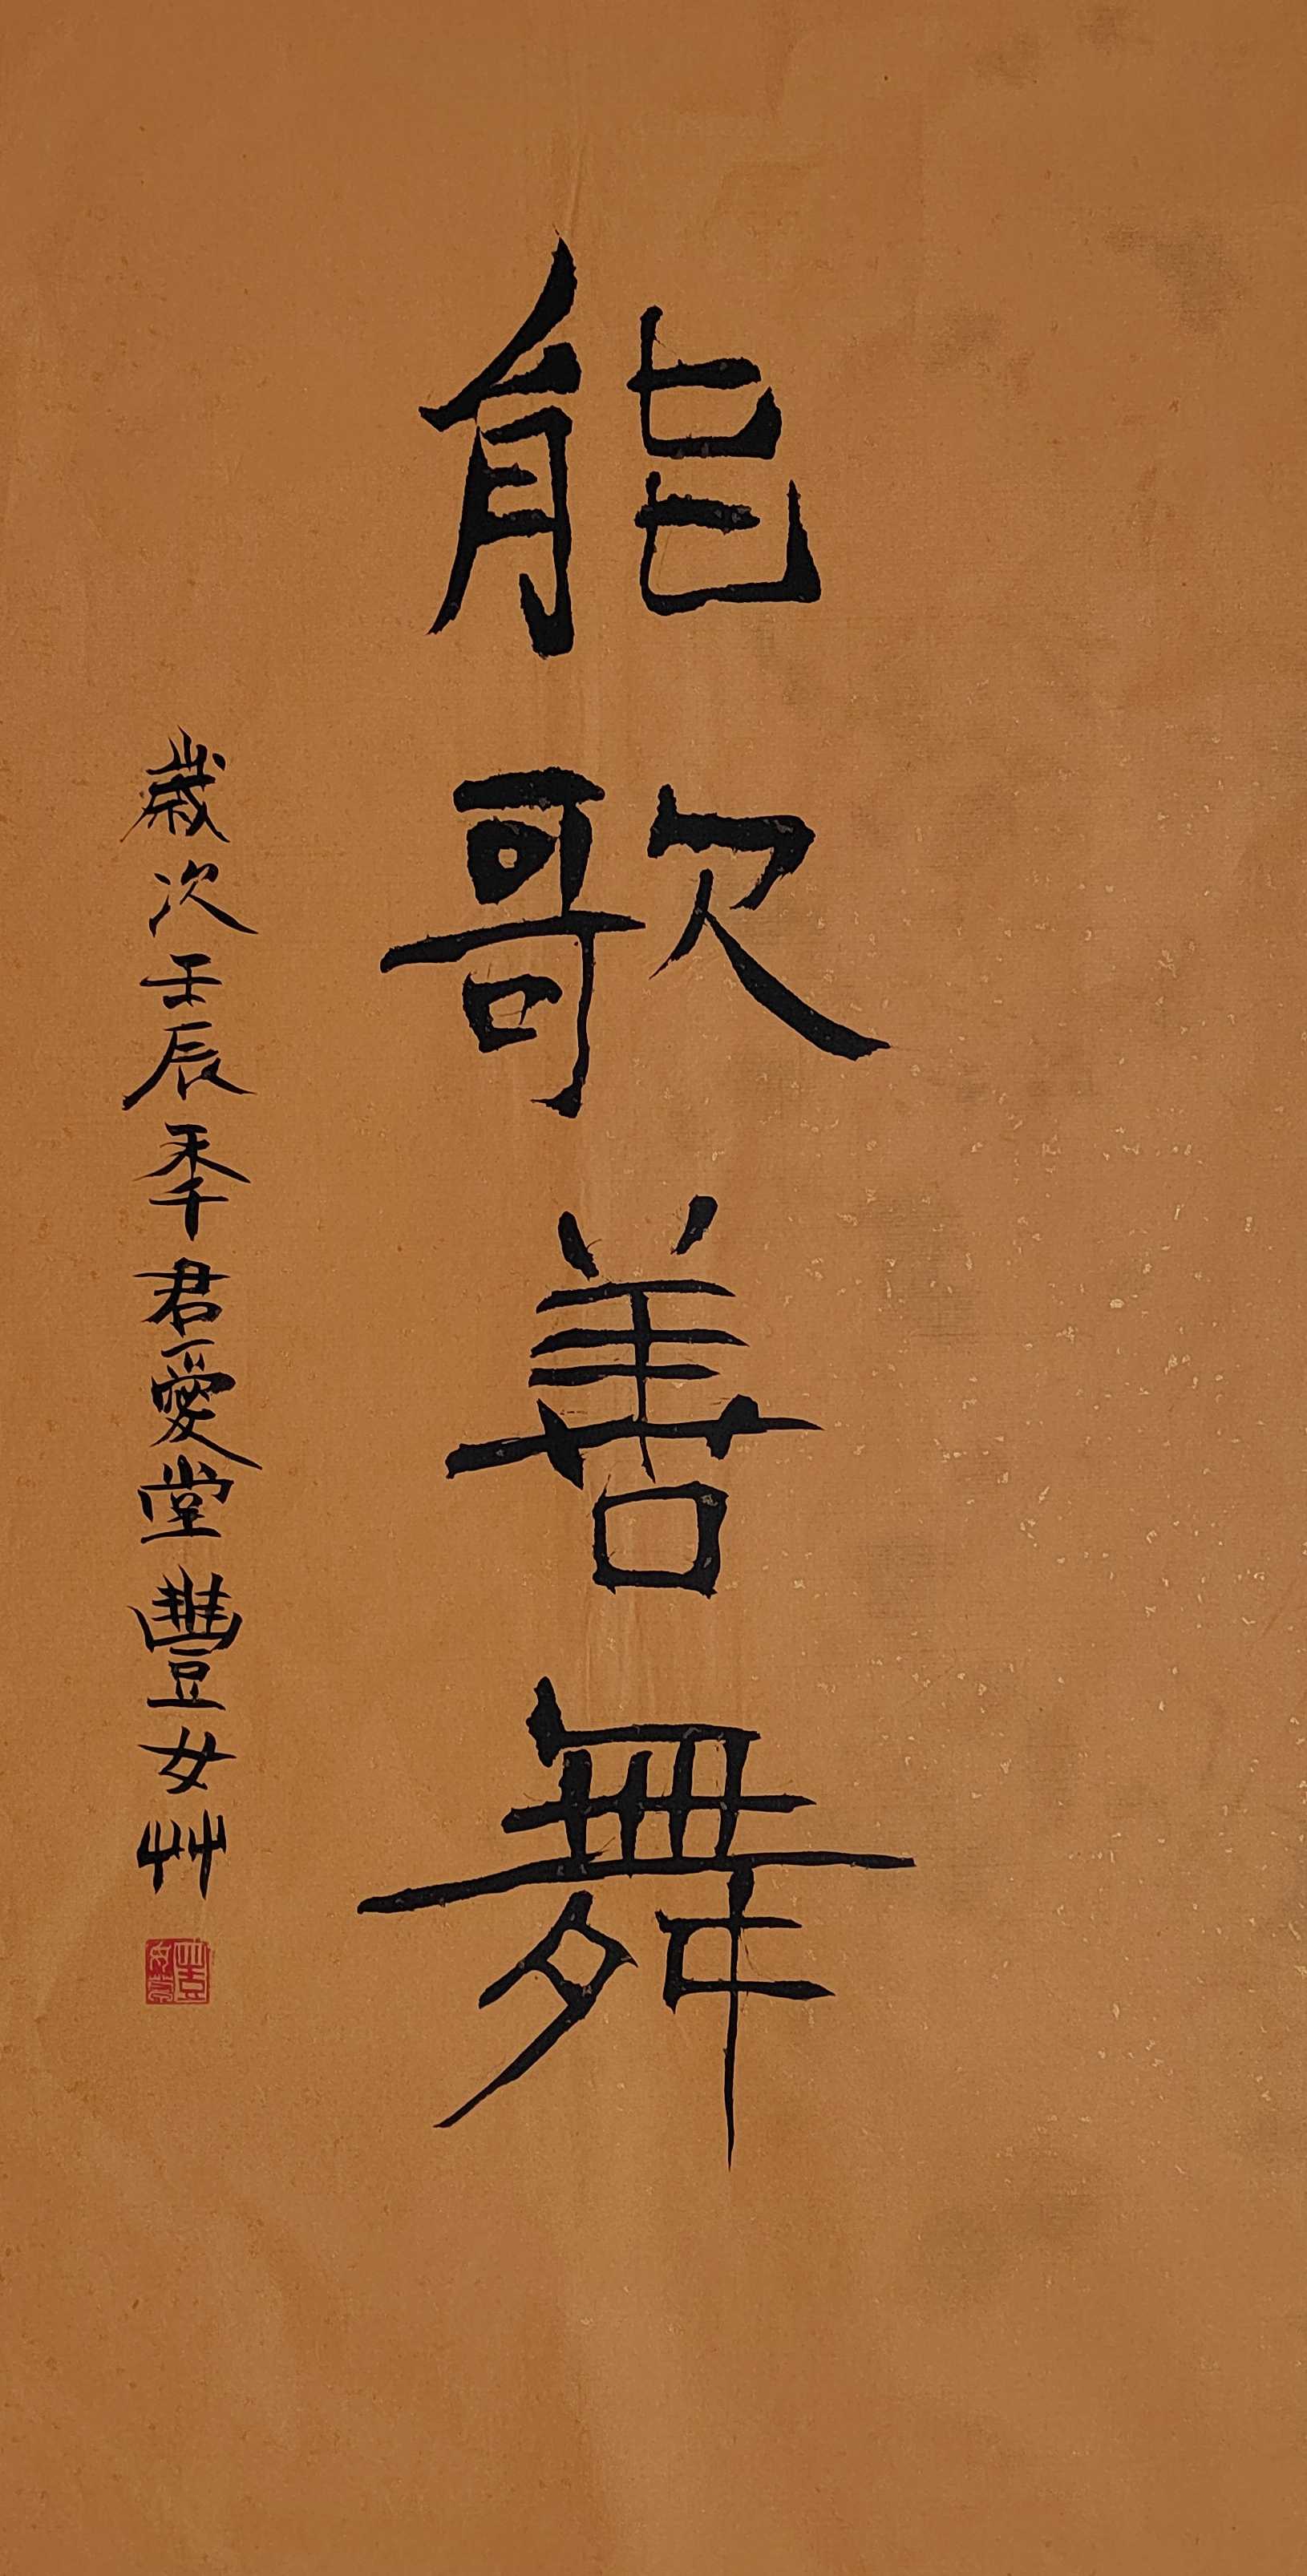 能歌善舞
歲次壬辰季君愛堂豐女艸